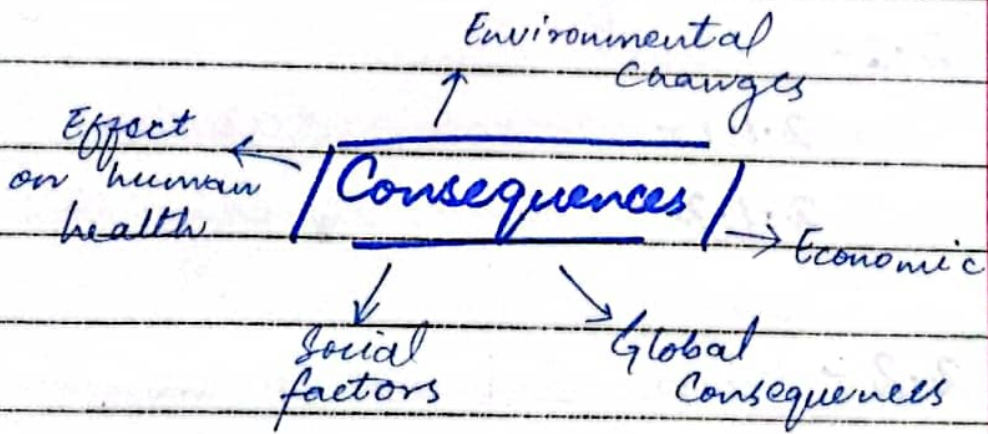 Environmental
Changes
Effect
on human
health
Consequences
Economic
Social
factors
Global
Consequences